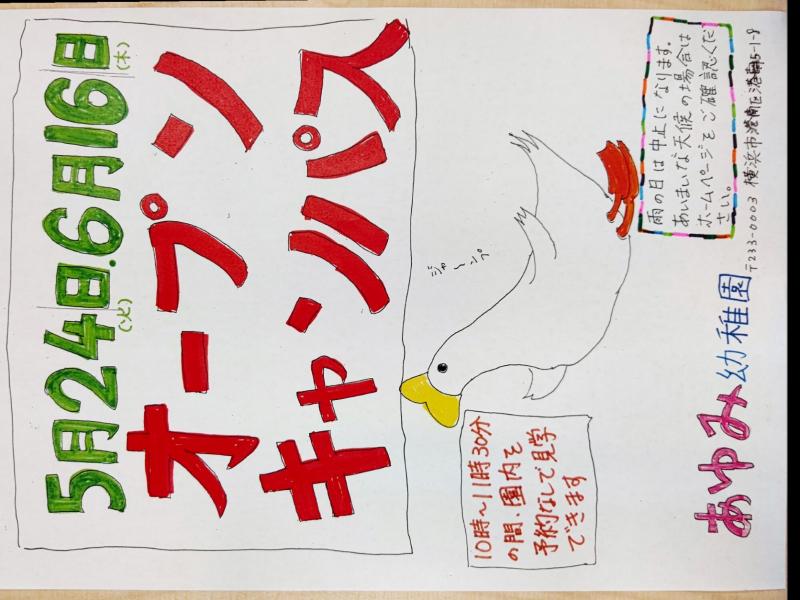 5月24日.6月16日
(火) (木)
オープン
キャンパス
ジャ〜ンプ
10時〜11時30分
の間、園内を
予約なしで見学
できます
雨の日は中止になります。
あいまいな天候の場合は
ホームページをご確認くだ
さい。
あゆみ幼稚園
〒233-0003 横浜市港南区港南5-1-8